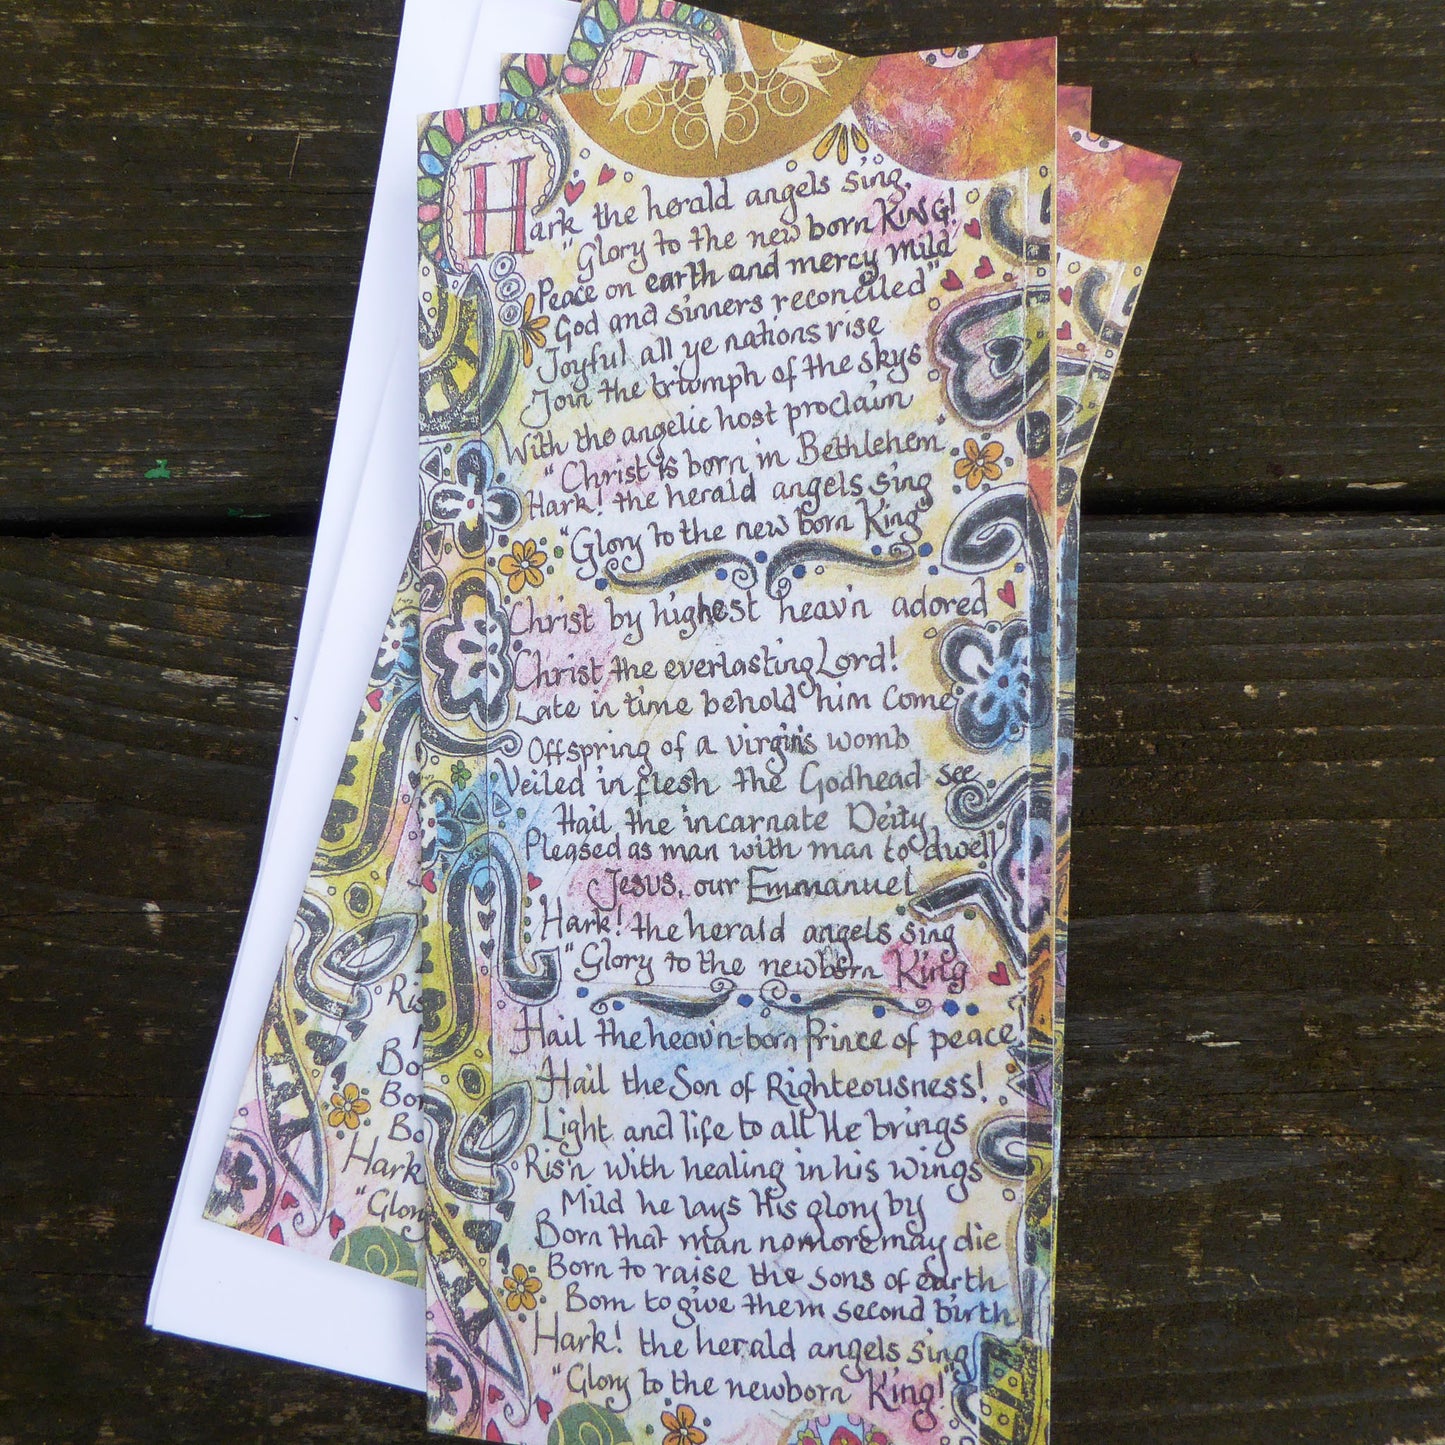 Hark the herald angels sing,
"Glory to the new born KING!
Peace on earth and mercy mild
God and sinners reconciled"
Joyful all ye nations rise
Join the triumph of the skys
With the angelic host proclaim
"Christ is born in Bethlehem"
Hark! the herald angels sing
"Glory to the new born King"
Christ by highest heav'n adored
Christ the everlasting Lord!
Late in time behold him come
Offspring of a virgin's womb
Veiled in flesh the Godhead see
Hail the incarnate Deity
Pleased as man with man to dwell
Jesus, our Emmanuel
Hark! the herald angels sing
"Glory to the newborn King
Hail the heav'n-born Prince of peace!
Hail the Son of Righteousness!
Light and life to all He brings
Ris'n with healing in his wings
Mild he lays His glory by
Born that man no more may die
Born to raise the sons of earth
Born to give them second birth
Hark! the herald angels sing
"Glory to the newborn King!"
H
Ris
Bo
Bo
Bo
Hark
"Glory